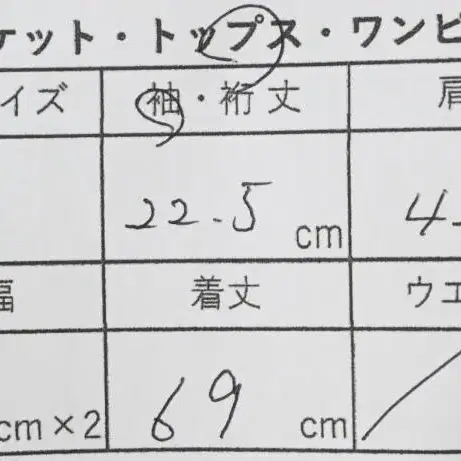 ケット・トップス・ワンピ
イズ 袖・裄丈 肩
22.5 cm 4
幅 着丈 ウエ
cm×2 69 cm